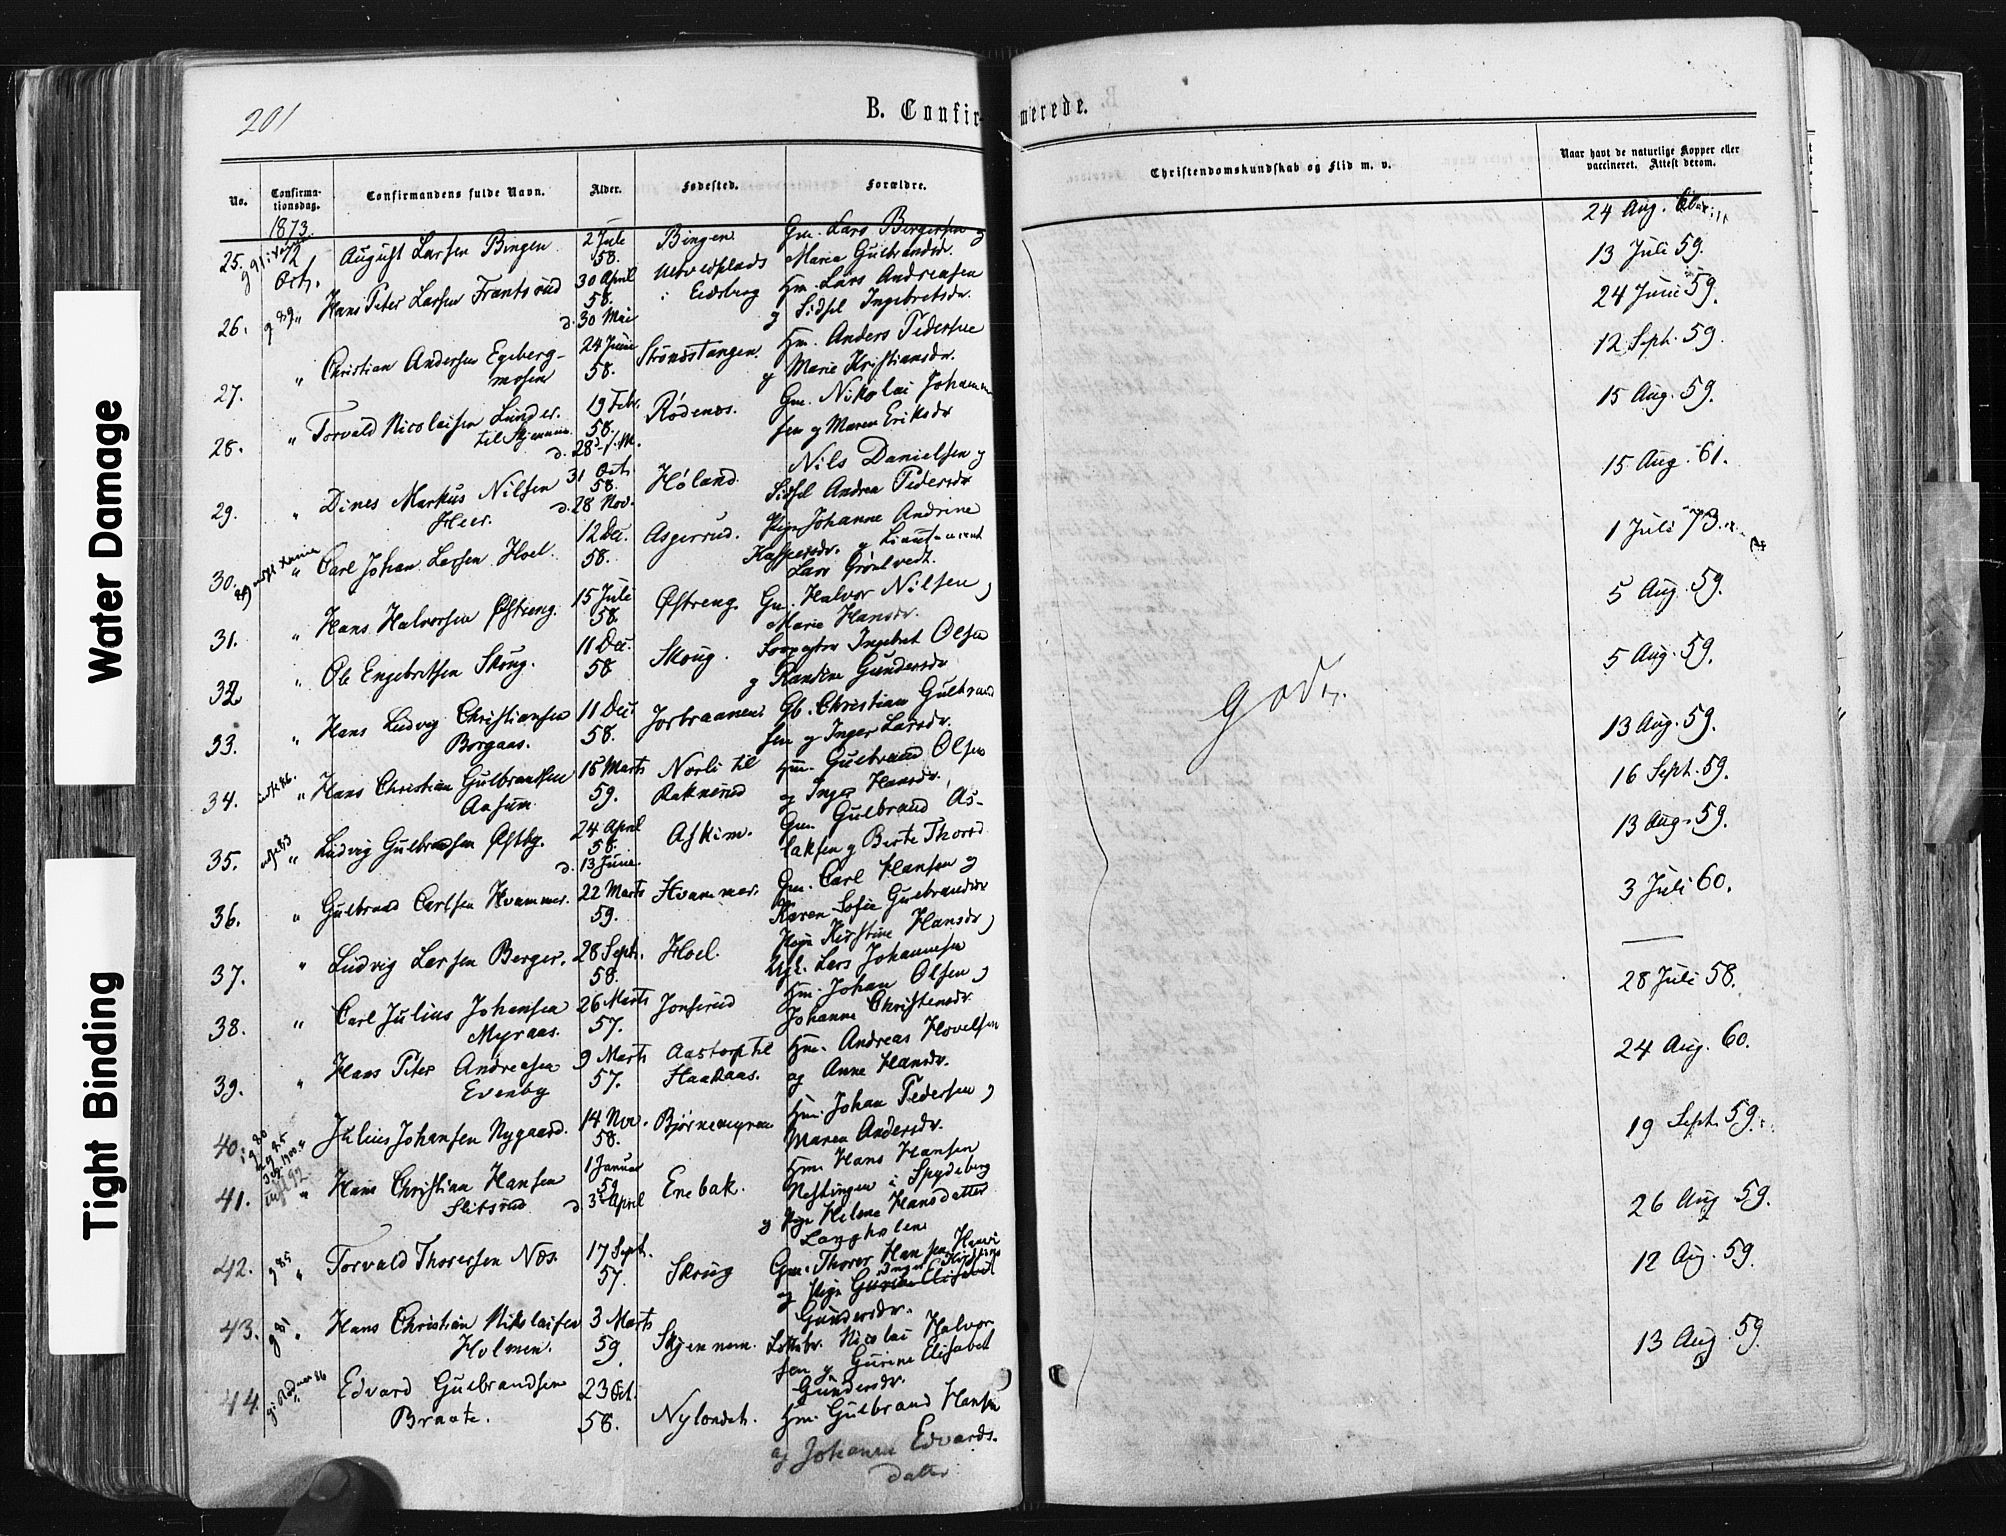 201
B. Confirmerede.
No.
Confirma-
tionsdag.
Confirmandens fulde Navn.
Alder.
Fødested.
Forældre.
Christendomskundskab og Flid m. v.
Naar havt de naturlige Kopper eller
vaccineret. Attest derom.
1873.
25. Octr. August Larsen Bingen 2 Juli 58. Bingen Gm. Lars Bergersen og Maria Gulbrandsdr. 24 Aug.
26. g 89 " Hans Peter Larsen Frantsrud 30 April 58. d. 30 Mai i Eidsberg Hm. Lars Andreasen og Sidsel Ingebretsdr. 13 Juli 59.
27. " Christian Andersen Egeberg-
mosen 24 Juni 58. Strønstangen. Hm. Anders Pedersen og Marie Kristiansdr. 24 Juni 59.
28. " Torvald Nicolaisen Lunder.
til Skjennem. 19 Febr. 58. d. 28 Rødenes. Gm. Nikolai Johannesen og Maren Eriksdr 12 Sept. 59.
29. " Dines Markus Nilsen
Heer. 31 Oct. 58. d. 28 Nov. Høland. Nils Danielsen og Sidsel Andrea Pedersdr 15 Aug. 59.
30. " Carl Johan Larsen Hoel. 12 Dec. 58. Asgerrud. Pige Johanne Andrine Kaspersdr. og Lieutenant Lars Grønlvedt. 15 Aug. 61.
31. " Hans Halvorsen Østreng. 15 Juli 58. Østreng. Gm. Halvor Nilsen, Marie Hansdr. 1 Juli 73.
32 " Ole Engebretsen Skoug. 11 Dec. 58 Skoug. Ingebret Olsen og Randine Gundersdr 5 Aug. 59.
33. " Hans Ludvig Christiansen
Borgaas. 11 Dec. 58. Gb. Christian Gulbrandsen og Inger Larsdr. 5 Aug. 59.
34. " Hans Christian Gulbrandsen
Aasum. 15 Marts 59. Norli til Raknerud Hm. Gulbrand Olsen og Inger Hansdr. 13 Aug. 59.
35. " Ludvig Gulbrandsen Østby. 24 April 58. d. 13 June. Askim. Gm. Gulbrand Aslaksen og Berte Thorsd 16 Sept. 59.
36. " Gulbrand Carlsen Hvammer. 22 Marts 59. Hvammer. Gm. Carl Hansen og Karen Sofie Gulbrandsdr 13 Aug. 59.
37. " Ludvig Larsen Berger. 28 Sept. 58. Hoel. Pige Kirstine Hansdr, Ugk. Lars Johannesen 3 Juli 60.
38. " Carl Julius Johansen
Myraas. 26 Marts 57. Jonsrud Hm. Johan Olsen, Johanne Christensdr.
39. " Hans Peter Andreasen
Evenby 9 Marts 57. Aastorp til Haakaas. Hm. Andreas Hovelsen og Anne Hansdr. 28 Juli 58.
40. Julius Johansen Nygaard. 14 Nov. 58. Bjørnemyren Hm. Johan Pedersen, Maren Andersdr. 24 Aug. 60.
41. " Hans Christian Hansen
Slitsrud 1 Januar 59 d 3 April Enebak. Hm. Hans Hansen Nestingen i Spydeberg og Pige Helene Hansdatter Langholen 19 Sept. 59.
42. g 85 " Torvald Thoresen Næs. 17 Sept. 57. Skoug Gm. Thorer Hansen og Pige Gurine Elisabet Gundersdr. 26 Aug 59.
43. g 81 " Hans Christian Nikolaisen
Holmen. 3 Marts 59 Skjennem. Nicolai Halvorsen og Gurine Elisabet Gundersdr. 12 Aug. 59.
44. " Edvard Gulbrandsen
Braate. 23 Oct. 58. Nylondet. Hm. Gulbrand Hansen og Johanne Edvards.
datter 13 Aug 59.
god.
Water Damage
Tight Binding